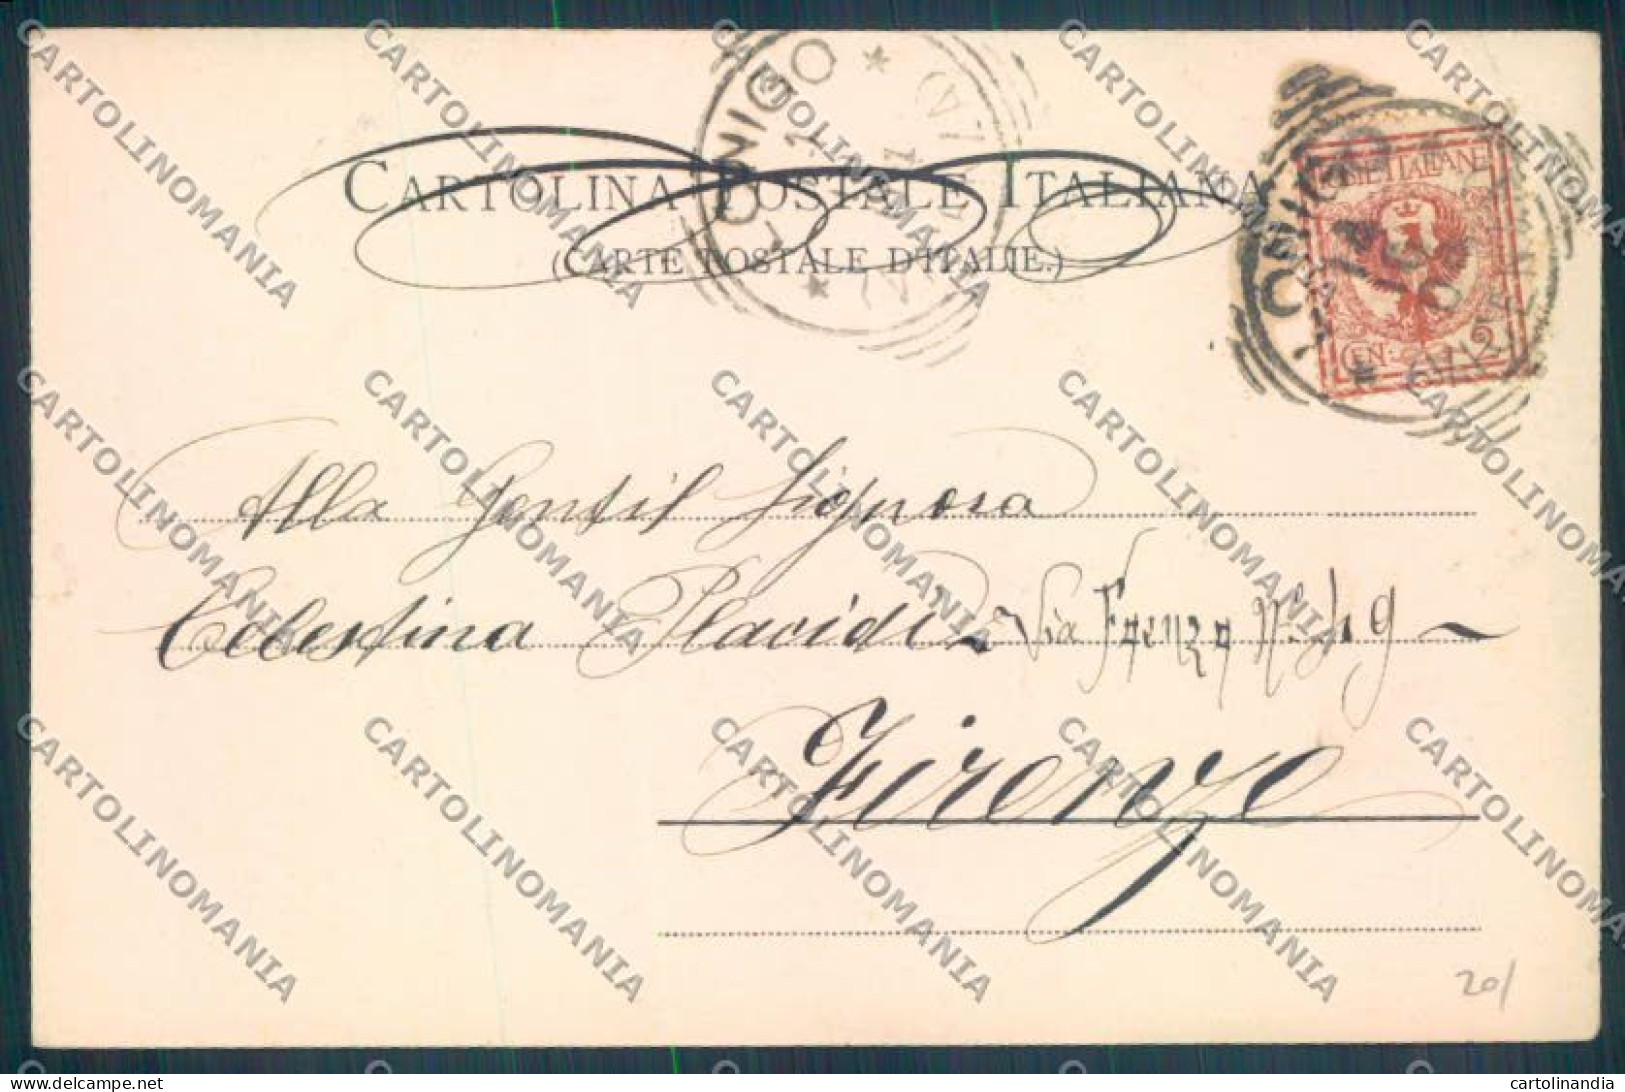 CARTOLINA POSTALE ITALIANA
(CARTE POSTALE D'ITALIE.)
LONIGO
LONIGO
POSTE ITALIANE
CEN: 2
Alla Gentil Signora
Celestina Placidi Via Faenza No. 19
Firenze
20/
CARTOLINOMANIA
delcampe.net
cartolinandia